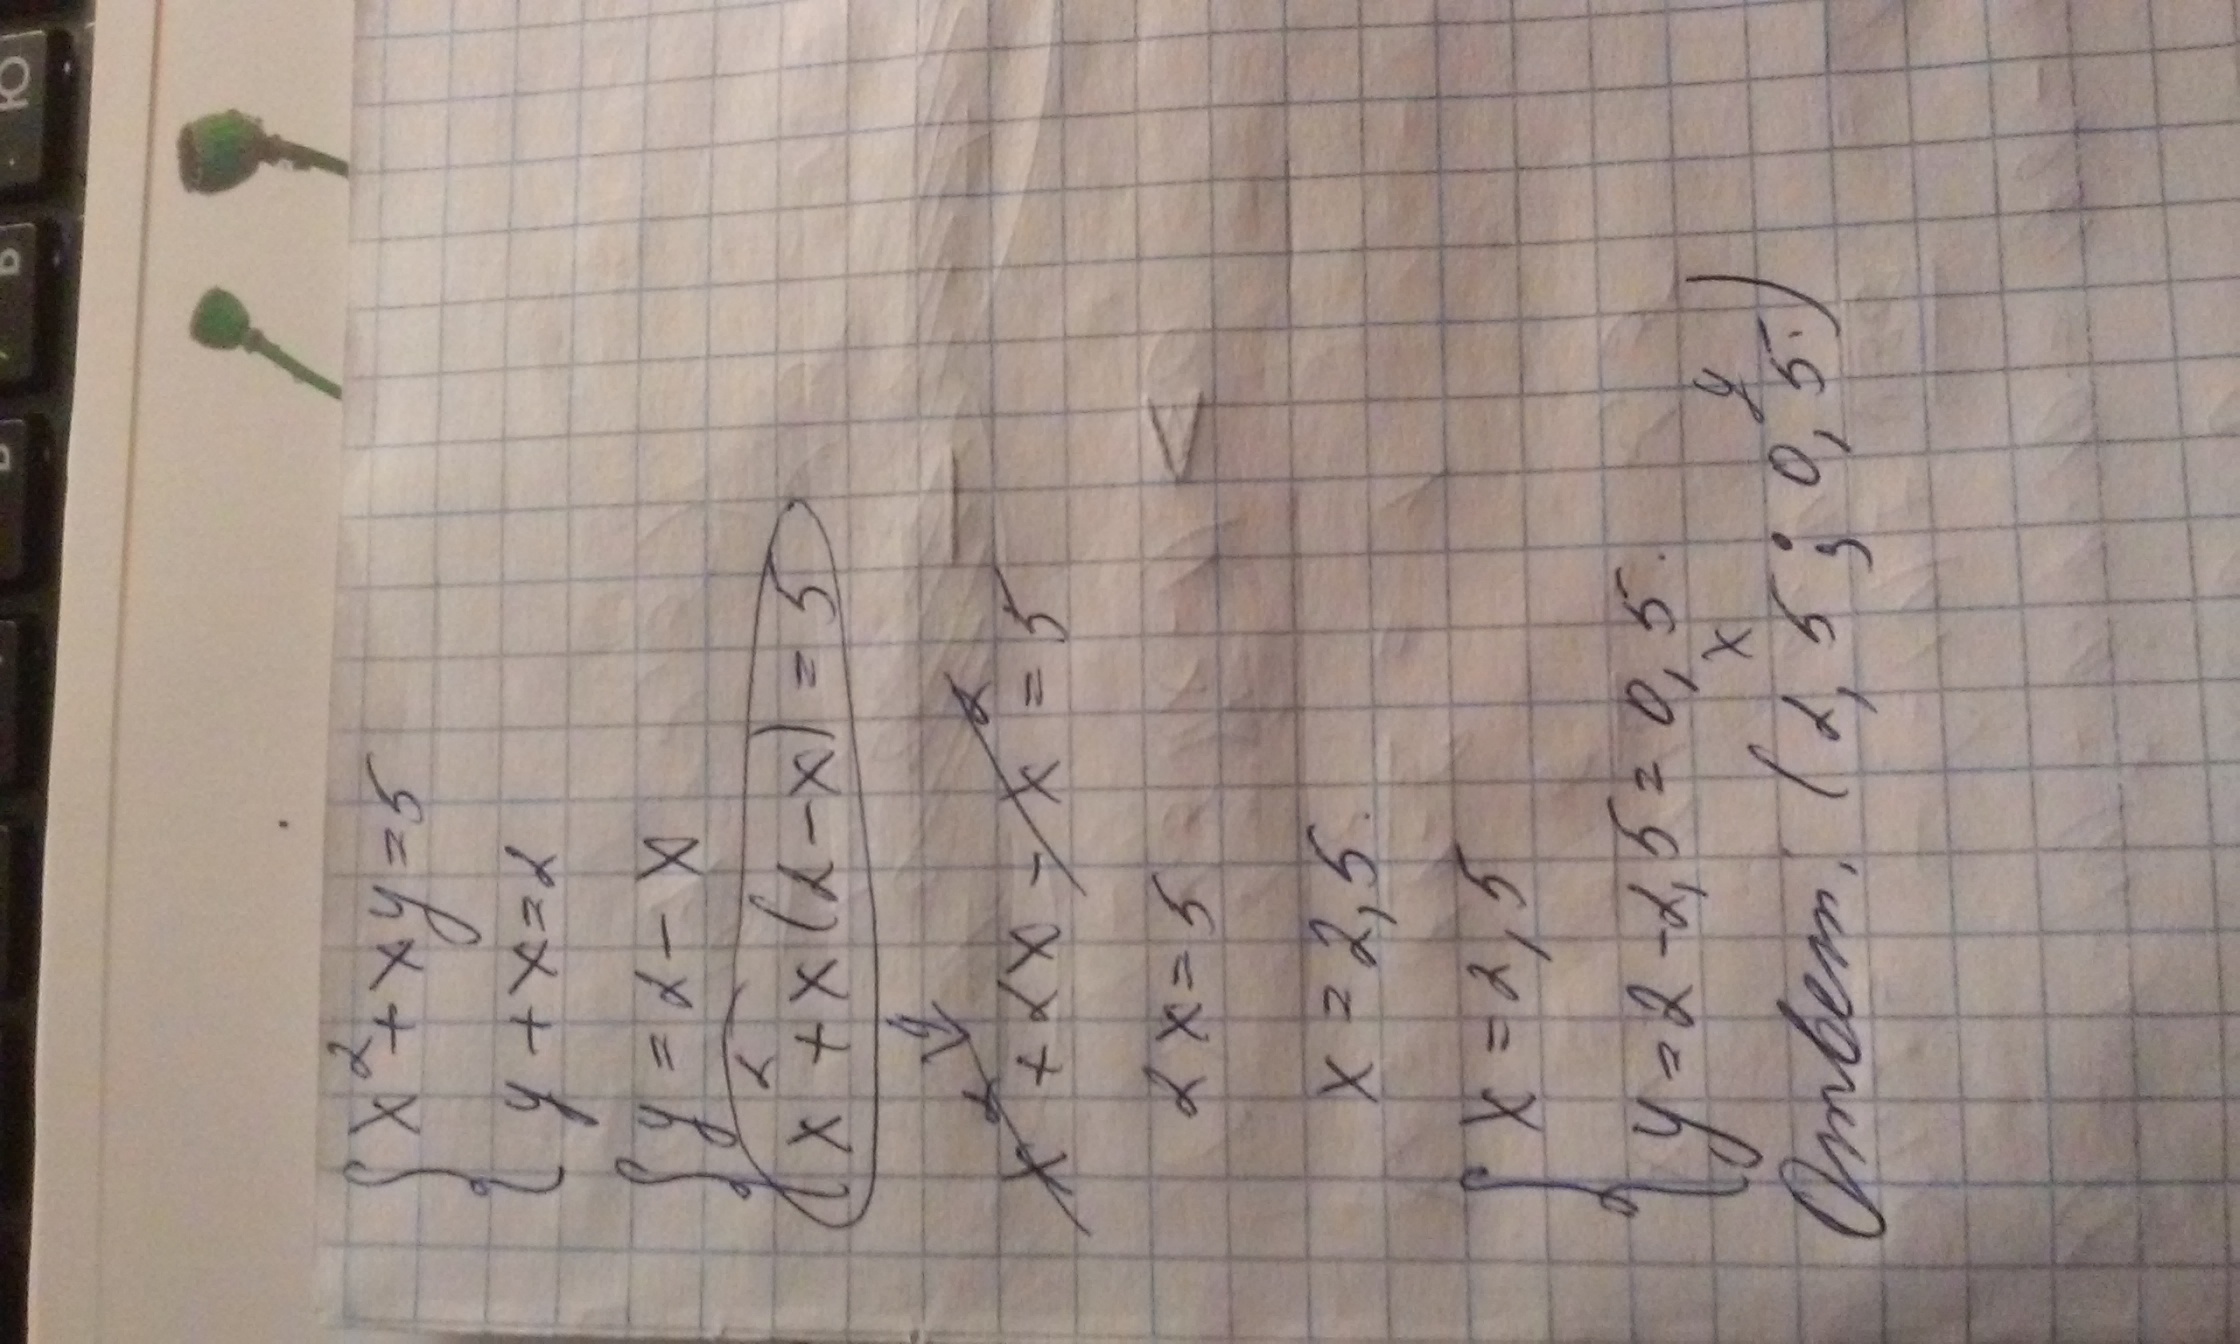 x² + xy = 5
y + x = 2
y = 2 - x
x² + x(2 - x) = 5
x² + 2x - x² = 5
2x = 5
x = 2,5.
x = 2,5
y = 2 - 2,5 = 0,5.
x y
Ответ. (2,5 ; 0,5.)
Ю
Ь